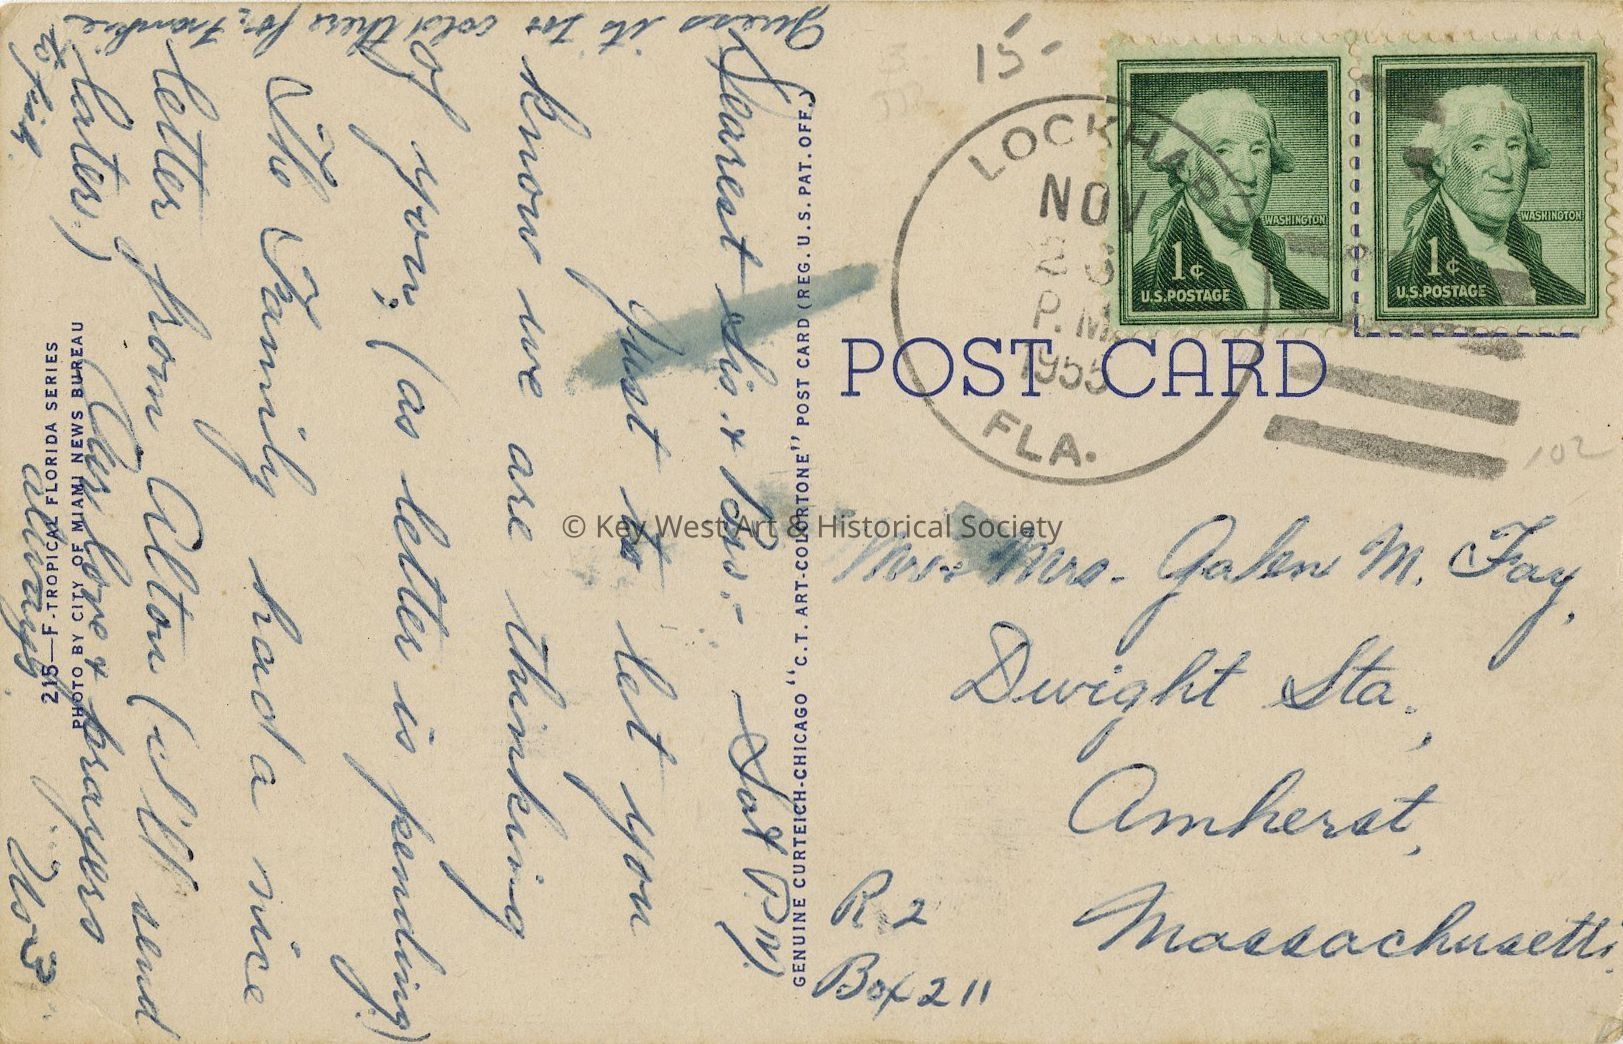 Guess it's too cold there for Frankie
to fuig
Dearest Sis. & Bro. - Sat P.M.
Just to let you
know we are thinking
of you; (as letter is pending)
The Family had a nice
letter from Alton (I'll send
later.)
Our love & prayers
always.
GENUINE CURTEICH-CHICAGO "C.T. ART-COLORTONE" POST CARD (REG. U.S. PAT. OFF.)
215—F-TROPICAL FLORIDA SERIES
PHOTO BY CITY OF MIAMI NEWS BUREAU
15-
LOCKHART
NOV
P.M.
1955
FLA.
WASHINGTON
1¢
U.S. POSTAGE
WASHINGTON
1¢
U.S. POSTAGE
POST CARD
102
© Key West Art & Historical Society
Mr. & Mrs. Galen M. Fay,
Dwight Sta.,
Amherst,
Massachusetts.
R. 2
Box 211